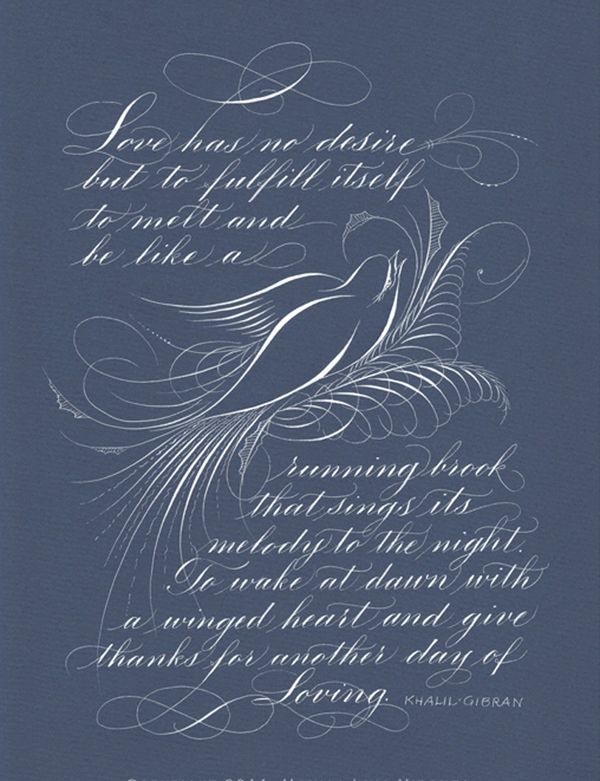 Love has no desire
but to fulfill itself
to melt and
be like a
running brook
that sings its
melody to the night.
To wake at dawn with
a winged heart and give
thanks for another day of
Loving. KHALIL·GIBRAN